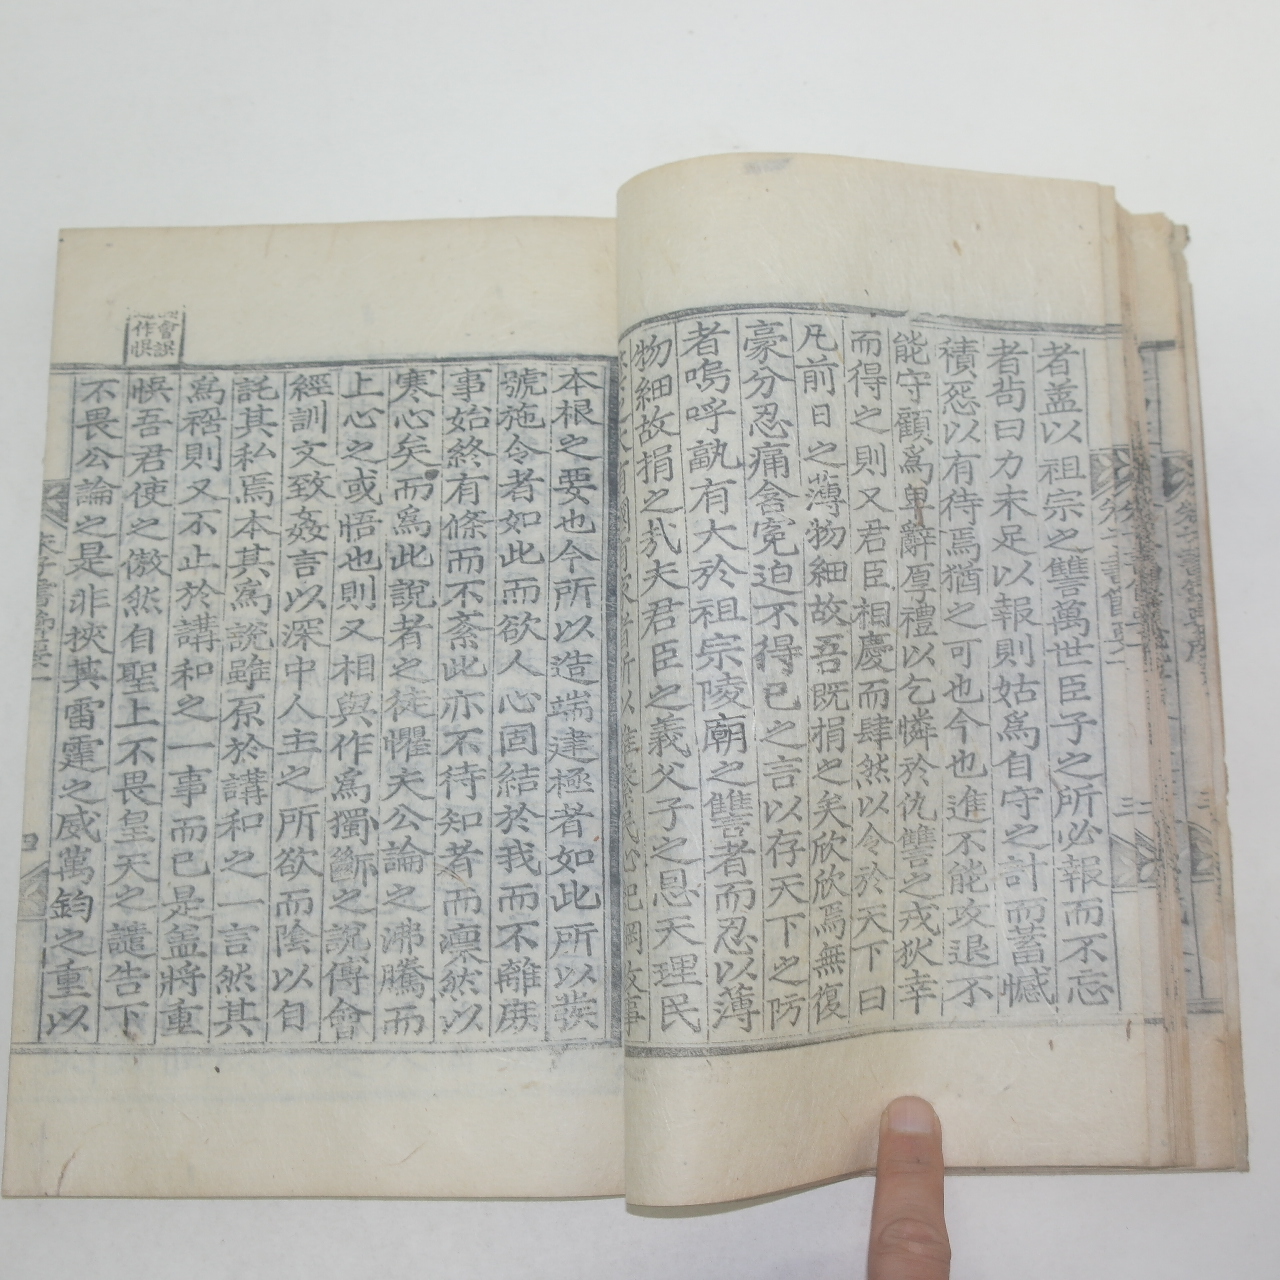 者盖以祖宗之讐萬世臣子之所必報而不忘
者苟曰力未足以報則姑爲自守之計而蓄憾
積怨以有待焉猶之可也今也進不能攻退不
能守顧爲卑辭厚禮以乞憐於仇讐之戎狄幸
而得之則又君臣相慶而肆然以令於天下曰
凡前日之薄物細故吾既捐之矣欣欣焉無復
豪分忍痛含冤迫不得已之言以存天下之防
者嗚呼孰有大於祖宗陵廟之讐者而忍以薄
物細故捐之哉夫君臣之義父子之恩天理民
本根之要也今所以造端建極者如此所以發
號施令者如此而欲人心固結於我而不離庶
事始終有條而不紊此亦不待知者而凛然以
寒心矣而爲此說者之徒懼夫公論之沸騰而
上心之或悟也則又相與作爲獨斷之說傅會
經訓文致姦言以深中人主之所欲而陰以自
託其私焉本其爲說雖原於講和之一言然其
爲禍則又不止於講和之一事而已是盖將重
悞吾君使之傲然自聖上不畏皇天之譴告下
不畏公論之是非挾其雷霆之威萬鈞之重以
會誤
作悞
四